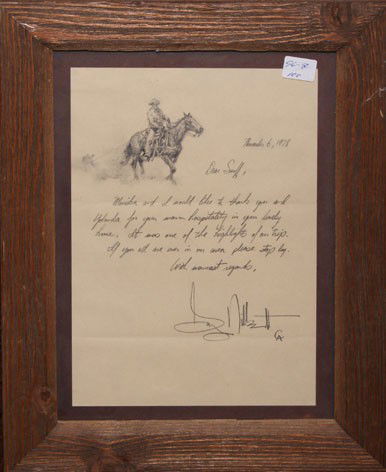 November 6, 1978
Dear Snuff,
and I would like to thank you and
for your warm hospitality in your lovely
home. It was one of the highlights of our trip.
If you all are ever in our area please stop by.
With warmest regards,
CA